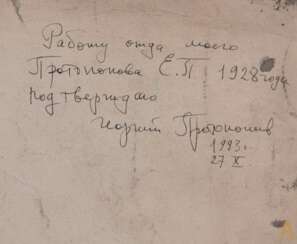 Работу отца моего
Протопопова Е.П 1928 года
подтверждаю
Протопопов
1993 г.
27 X